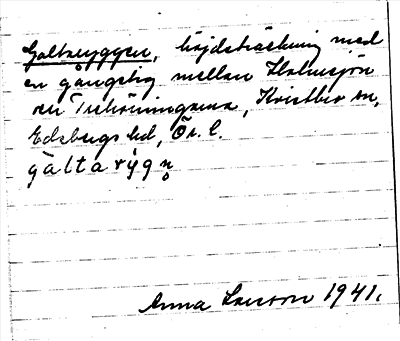 Galtaryggen, höjdsträckning med
en gångstig mellan Holmsjön
och Trehörningarna, Kvistbro sn,
Edsbergs hd, Ör. l.
galtarygn̥
Anna Larsson 1941.